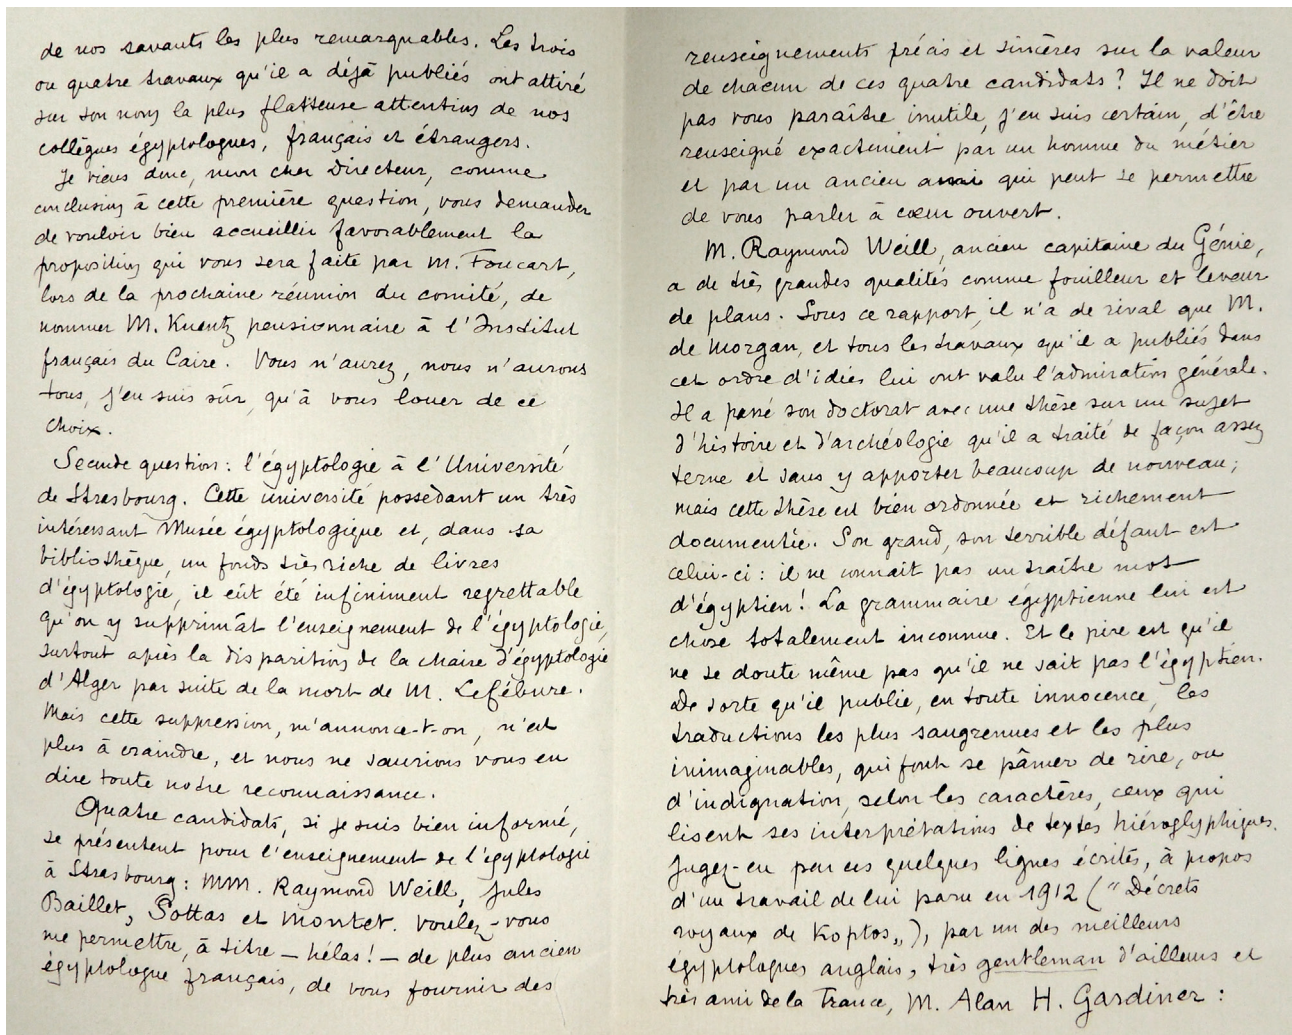 de nos savants les plus remarquables. Les trois
ou quatre travaux qu'il a déjà publiés ont attiré
sur son nom la plus flatteuse attention de nos
collègues égyptologues, français et étrangers.
Je viens donc, mon cher Directeur, comme
conclusion à cette première question, vous demander
de vouloir bien accueillir favorablement la
proposition qui vous sera faite par M. Foucart,
lors de la prochaine réunion du comité, de
nommer M. Kuentz pensionnaire à l'Institut
français du Caire. Vous n'aurez, nous n'aurons
tous, j'en suis sûr, qu'à vous louer de ce
choix.
Seconde question : l'égyptologie à l'Université
de Strasbourg. Cette université possédant un très
intéressant Musée égyptologique et, dans sa
bibliothèque, un fonds très riche de livres
d'égyptologie, il eût été infiniment regrettable
qu'on y supprimât l'enseignement de l'égyptologie,
surtout après la disparition de la chaire d'égyptologie
d'Alger par suite de la mort de M. Lefébure.
Mais cette suppression, m'annonce-t-on, n'est
plus à craindre, et nous ne saurions vous en
dire toute notre reconnaissance.
Quatre candidats, si je suis bien informé,
se présentent pour l'enseignement de l'égyptologie
à Strasbourg : MM. Raymond Weill, Jules
Baillet, Sottas et Montet. Voulez-vous
me permettre, à titre – hélas ! – de plus ancien
égyptologue français, de vous fournir des
renseignements précis et sincères sur la valeur
de chacun de ces quatre candidats ? Il ne doit
pas vous paraître inutile, j'en suis certain, d'être
renseigné exactement par un homme du métier
et par un ancien ami qui peut se permettre
de vous parler à cœur ouvert.
M. Raymond Weill, ancien capitaine du Génie,
a de très grandes qualités comme fouilleur et leveur
de plans. Sous ce rapport, il n'a de rival que M.
de Morgan, et tous les travaux qu'il a publiés dans
cet ordre d'idées lui ont valu l'admiration générale.
Il a passé son doctorat avec une thèse sur un sujet
d'histoire et d'archéologie qu'il a traité de façon assez
terne et sans y apporter beaucoup de nouveau ;
mais cette thèse est bien ordonnée et richement
documentée. Son grand, son terrible défaut est
celui-ci : il ne connait pas un traître mot
d'égyptien ! La grammaire égyptienne lui est
chose totalement inconnue. Et le pire est qu'il
ne se doute même pas qu'il ne sait pas l'égyptien.
De sorte qu'il publie, en toute innocence, les
traductions les plus saugrenues et les plus
inimaginables, qui font se pâmer de rire, ou
d'indignation, selon les caractères, ceux qui
lisent ses interprétations de textes hiéroglyphiques.
Jugez-en par ces quelques lignes écrites, à propos
d'un travail de lui paru en 1912 ("Décrets
royaux de Koptos„), par un des meilleurs
égyptologues anglais, très gentleman d'ailleurs et
très ami de la France, M. Alan H. Gardiner :